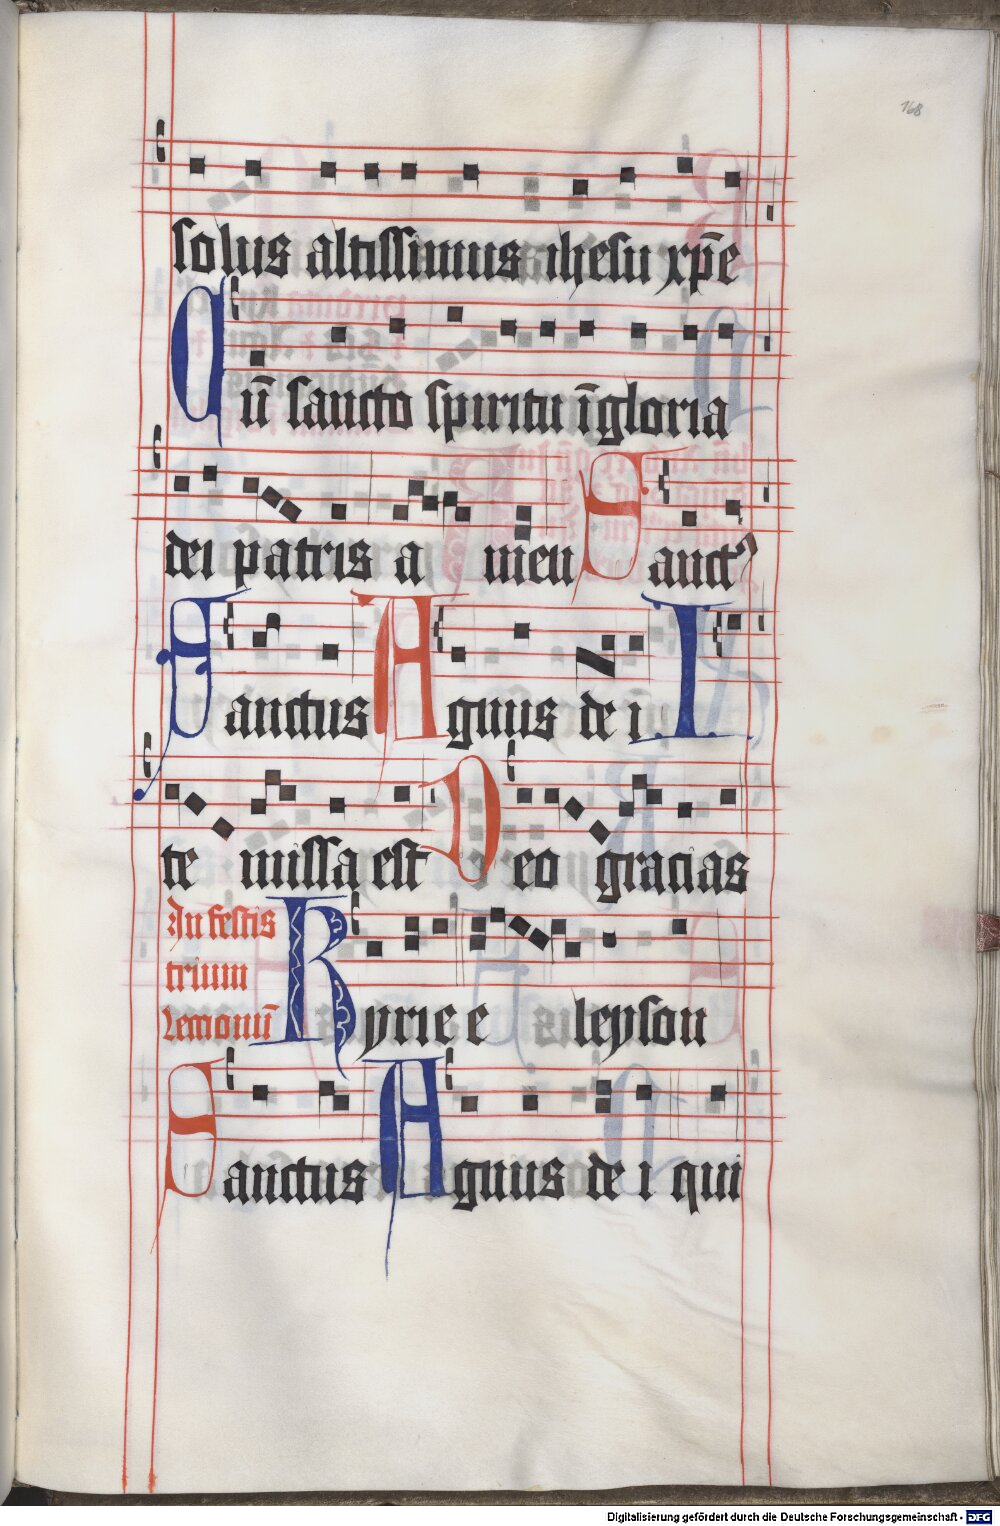 168
solus altissimus ihesu xp̄e
Cū sancto spiritu ī gloria
dei patris a men Sanctꝰ
Sanctus Agnus de i I
te missa est Deo gracias
In festis
trium
lectionū
Kyrie e leyson
Sanctus Agnus de i qui
Digitalisierung gefördert durch die Deutsche Forschungsgemeinschaft - DFG